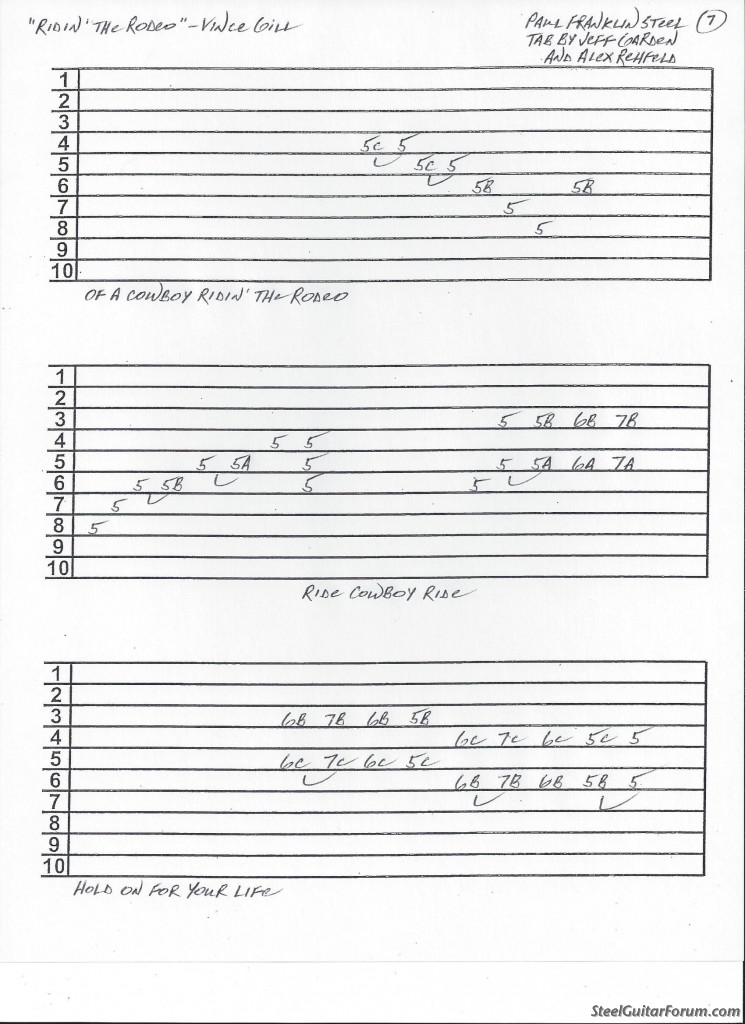 "RIDIN' THE RODEO" - VINCE GILL
PAUL FRANKLIN STEEL 7
TAB BY JEFF GARDEN
AND ALEX REHFELD
1
2
3
4 5C 5
5 5C 5
6 5B 5B
7 5
8 5
9
10
OF A COWBOY RIDIN' THE RODEO
1
2
3 5 5B 6B 7B
4 5 5
5 5 5A 5 5 5A 6A 7A
6 5 5B 5 5
7 5
8 5
9
10
RIDE COWBOY RIDE
1
2
3 6B 7B 6B 5B
4 6C 7C 6C 5C 5
5 6C 7C 6C 5C
6 6B 7B 6B 5B 5
7
8
9
10
HOLD ON FOR YOUR LIFE
SteelGuitarForum.com